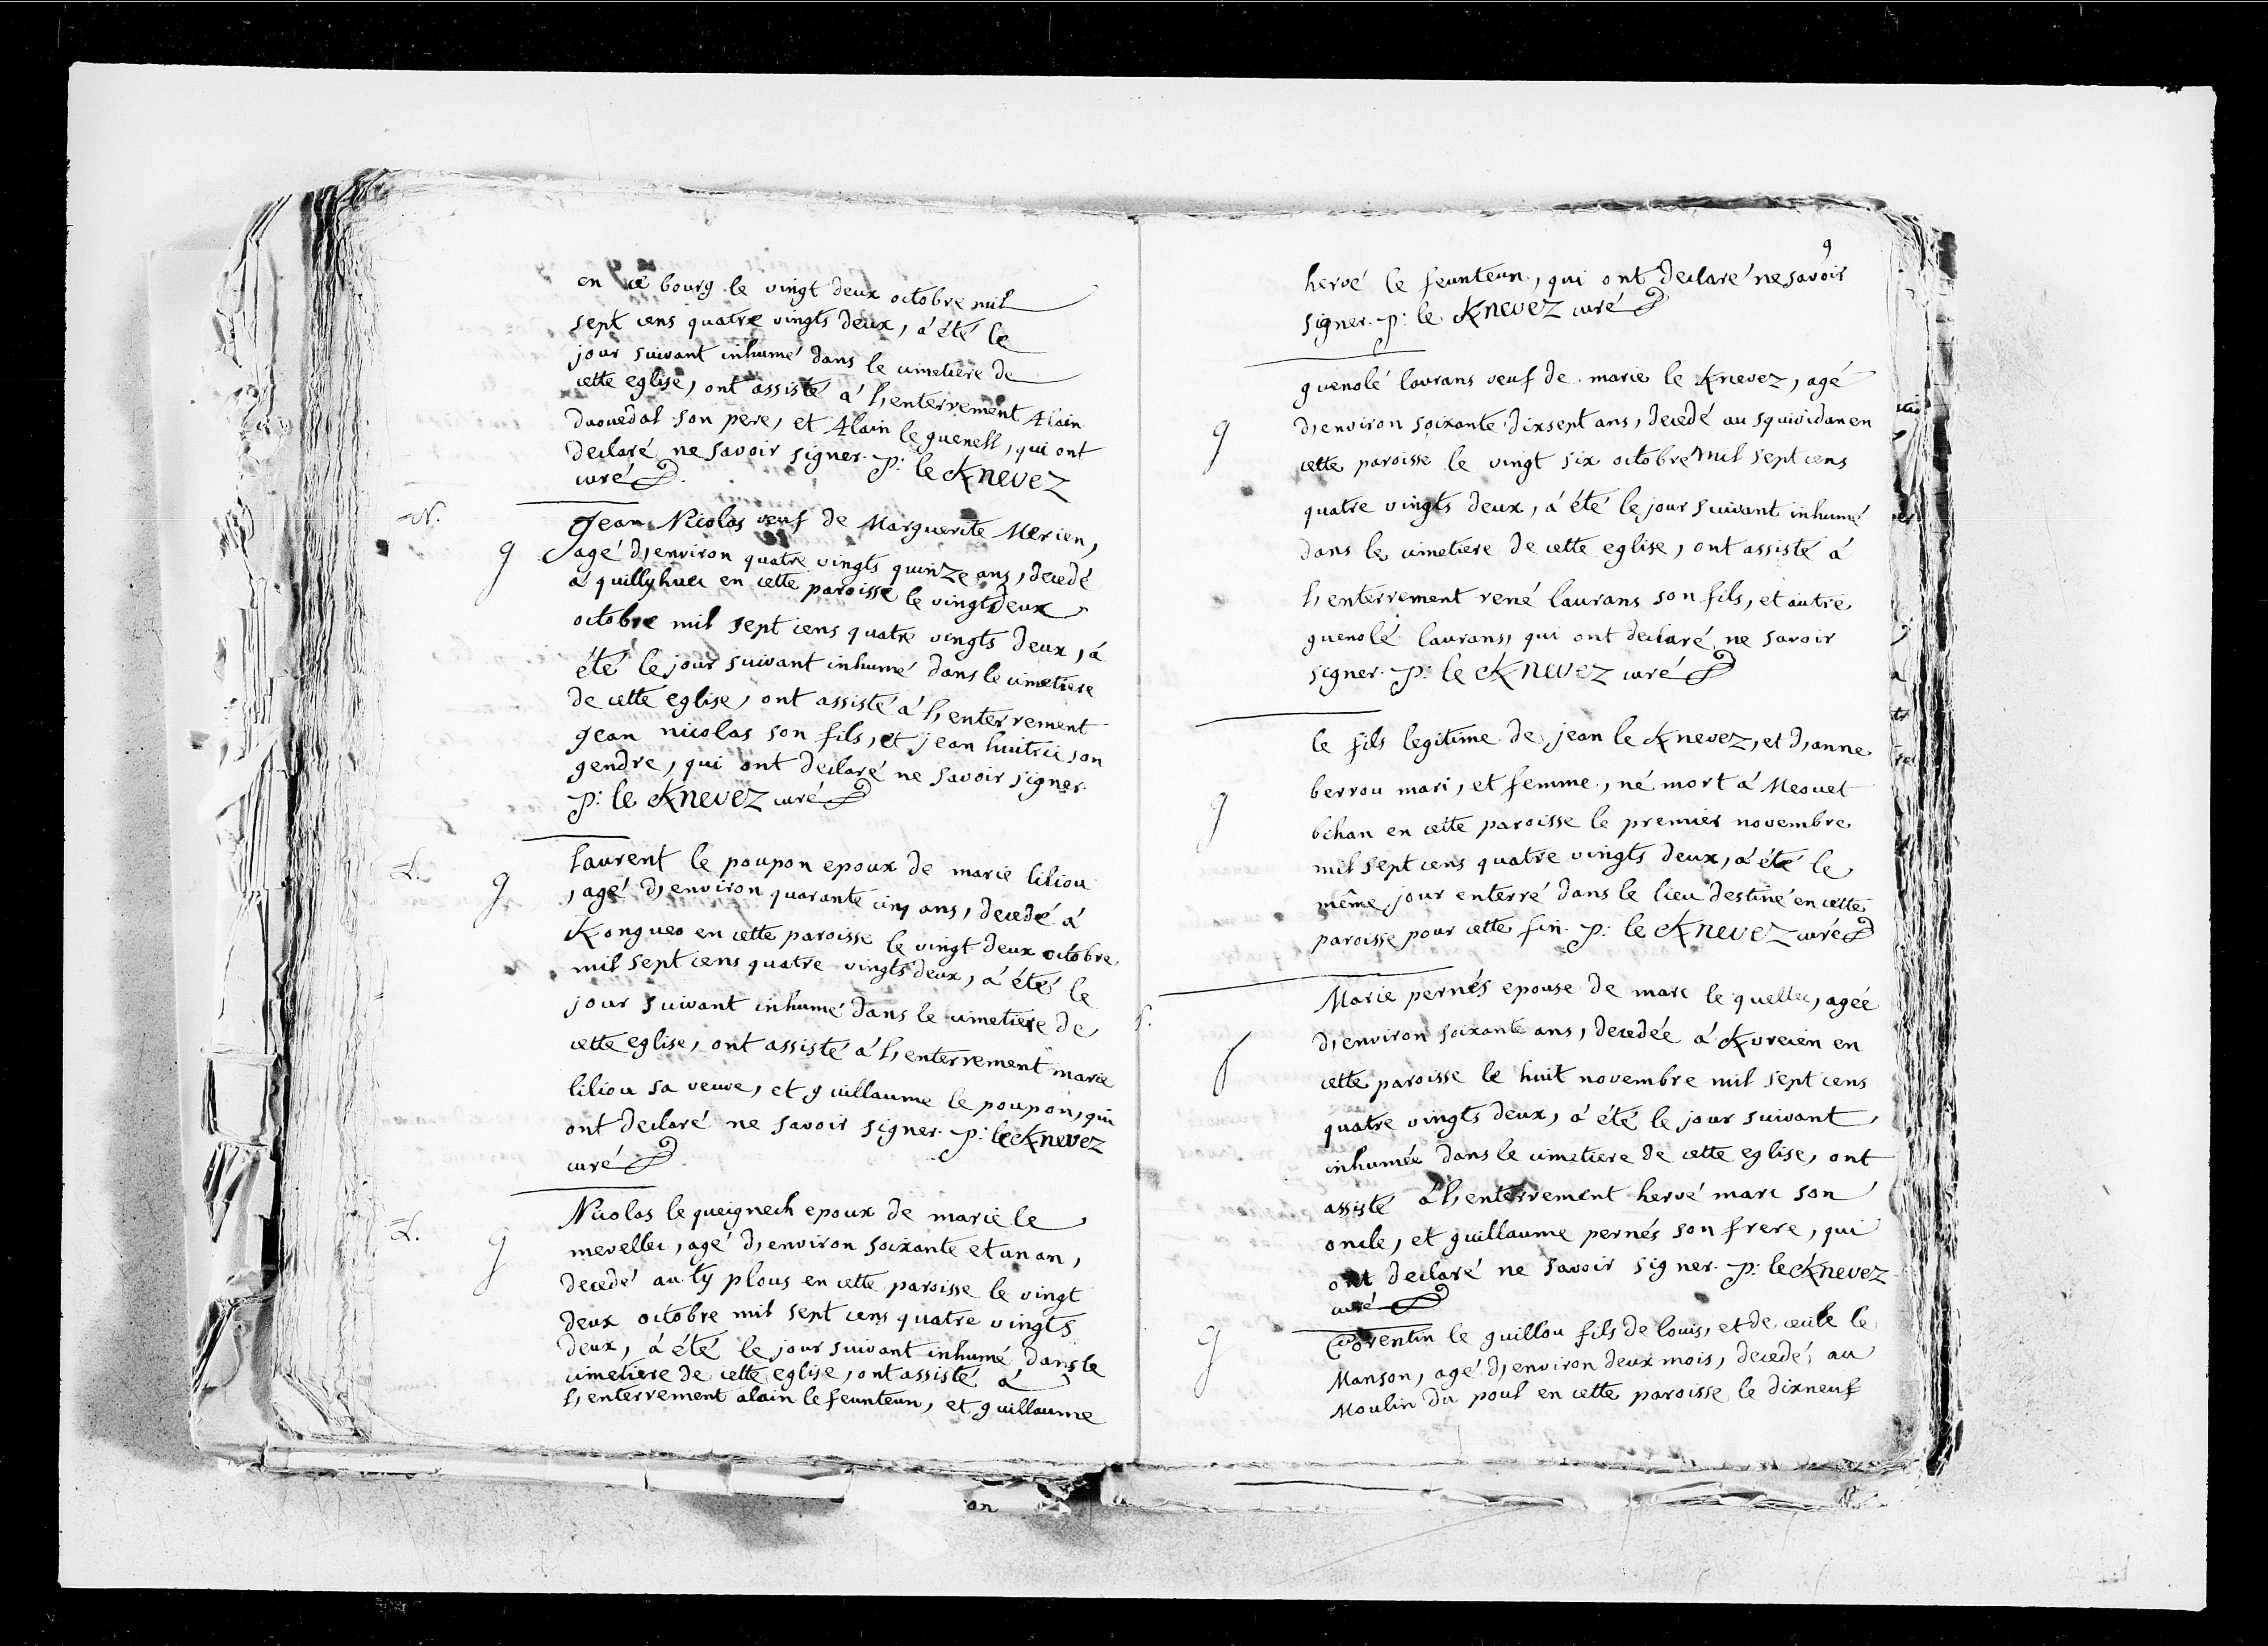 en ce bourg le vingt deux octobre mil
sept cens quatre vingts deux, á été le
jour suivant inhumé dans le cimetiere de
cette eglise, ont assisté á l,enterrement Alain
daouedal son pere, et Alain le guenell, qui ont
declaré ne savoir signer. p: le Knevez
curé
N.
g
Jean Nicolas veuf de Marguerite Merien,
agé d,environ quatre vingts quinze ans, decedé
á quillyhuec en cette paroisse le vingt deux
octobre mil sept cens quatre vingts deux, á
été le jour suivant inhumé dans le cimetiere
de cette eglise, ont assisté á l,enterrement
jean nicolas son fils, et jean huitric son
gendre, qui ont declaré ne savoir signer.
p: le Knevez curé
L.
g
laurent le poupon epoux de marie liliou
, agé d,environ quarante cinq ans, decedé á
Kongueo en cette paroisse le vingt deux octobre
mil sept cens quatre vingts deux, á été le
jour suivant inhumé dans le cimetiere de
cette eglise, ont assisté á l,enterrement marie
liliou sa veuve, et guillaume le poupon, qui
ont declaré ne savoir signer. p: le Knevez
curé
L.
g
Nicolas le queignech epoux de marie le
mevellec, agé d,environ soixante et un an,
decedé au ty plous en cette paroisse le vingt
deux octobre mil sept cens quatre vingts
deux, á été le jour suivant inhumé dans le
cimetiere de cette eglise, ont assisté á
l,enterrement alain le feunteun, et guillaume
9
hervé le feunteun, qui ont declaré ne savoir
signer. p: le Knevez curé
g
guenolé laurans veuf de marie le Knevez, agé
d,environ soixante dixsept ans, decedé au squividan en
cette paroisse le vingt six octobre mil sept cens
quatre vingts deux, á été le jour suivant inhumé
dans le cimetiere de cette eglise, ont assisté á
l,enterrement rené laurans son fils, et autre
guenolé laurans, qui ont declaré ne savoir
signer. p: le Knevez curé
g
le fils legitime de jean le Knevez, et d,anne
berrou mari, et femme, né mort á Meouet
bihan en cette paroisse le premier novembre
mil sept cens quatre vingts deux, á été le
même jour enterré dans le lieu destiné en cette
paroisse pour cette fin. p: le Knevez curé
Marie pernés epouse de marc le quellec, agée
d,environ soixante ans, decedée á Kvreien en
cette paroisse le huit novembre mil sept cens
quatre vingts deux, á été le jour suivant
inhumée dans le cimetiere de cette eglise, ont
assisté á l,enterrement hervé marc son
oncle, et guillaume pernés son frere, qui
ont declaré ne savoir signer. p: le Knevez
curé
g
Corentin le guillou fils de louis, et de cecile le
Manson, agé d,environ deux mois, decedé au
Moulin du poul en cette paroisse le dixneuf